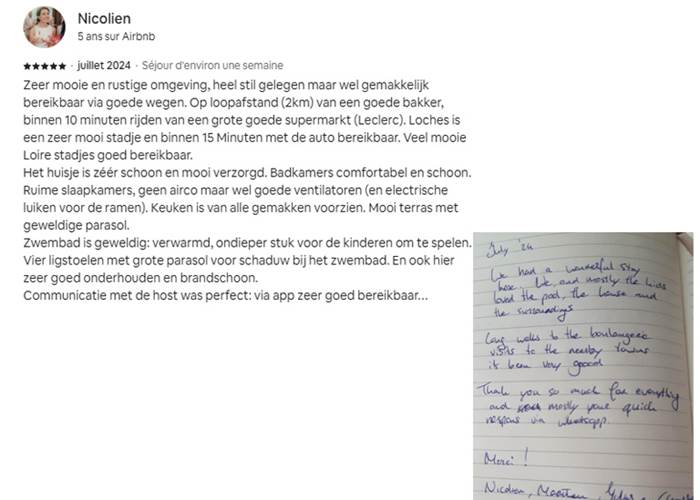 Nicolien
5 ans sur Airbnb
★★★★★ · juillet 2024 · Séjour d'environ une semaine
Zeer mooie en rustige omgeving, heel stil gelegen maar wel gemakkelijk
bereikbaar via goede wegen. Op loopafstand (2km) van een goede bakker,
binnen 10 minuten rijden van een grote goede supermarkt (Leclerc). Loches is
een zeer mooi stadje en binnen 15 Minuten met de auto bereikbaar. Veel mooie
Loire stadjes goed bereikbaar.
Het huisje is zéér schoon en mooi verzorgd. Badkamers comfortabel en schoon.
Ruime slaapkamers, geen airco maar wel goede ventilatoren (en electrische
luiken voor de ramen). Keuken is van alle gemakken voorzien. Mooi terras met
geweldige parasol.
Zwembad is geweldig: verwarmd, ondieper stuk voor de kinderen om te spelen.
Vier ligstoelen met grote parasol voor schaduw bij het zwembad. En ook hier
zeer goed onderhouden en brandschoon.
Communicatie met de host was perfect: via app zeer goed bereikbaar...
July '24
We had a wonderful stay
here. We, and mostly the kids
loved the pool, the house and
the surroundings
Long walks to the boulangerie
visits to the nearby towns
it's been very goood
Thank you so much for everything
and mostly your quick
respons via whatsapp.
Merci!
Nicolien, Maarten,